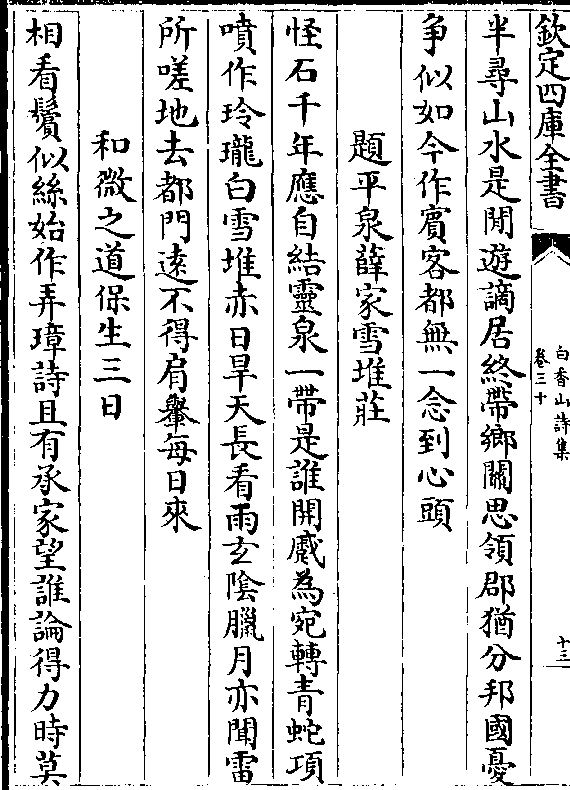 欽定四庫全書
白香山詩集
卷三十
十三
半尋山水是閒遊謫居終帶鄉關思領郡猶分邦國憂
争似如今作賔客都無一念到心頭
題平泉薛家雪堆莊
怪石千年應自結靈泉一帶是誰開蹙為宛轉青蛇項
噴作玲瓏白雪堆赤日旱天長看雨玄陰臘月亦聞雷
所嗟地去都門逺不得肩舁每日來
和微之道保生三日
相看鬢似絲始作弄璋詩且有承家望誰論得力時莫